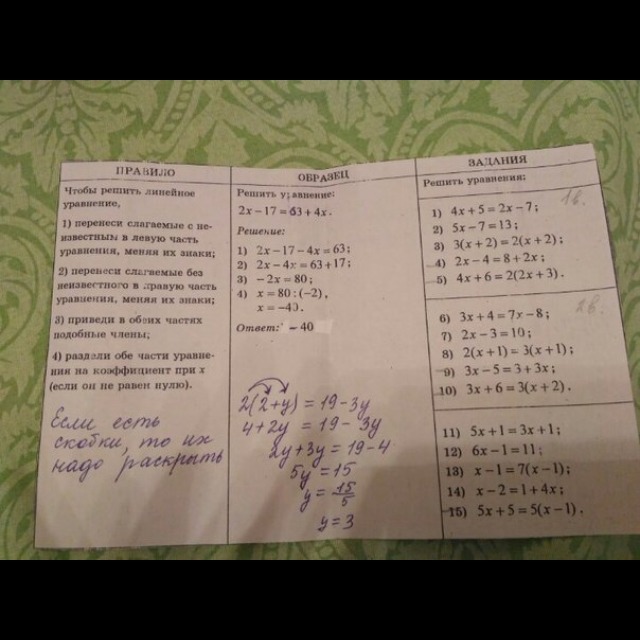 ПРАВИЛО
Чтобы решить линейное
уравнение,
1) перенеси слагаемые с не-
известным в левую часть
уравнения, меняя их знаки;
2) перенеси слагаемые без
неизвестного в правую часть
уравнения, меняя их знаки;
3) приведи в обеих частях
подобные члены;
4) раздели обе части уравне-
ния на коэффициент при x
(если он не равен нулю).
Если есть
скобки, то их
надо раскрыть
ОБРАЗЕЦ
Решить уравнение:
2x − 17 = 63 + 4x.
Решение:
1) 2x − 17 − 4x = 63;
2) 2x − 4x = 63 + 17;
3) −2x = 80;
4) x = 80 : (−2),
x = −43.
Ответ: − 40
2(2+y) = 19 − 3y
4 + 2y = 19 − 3y
2y + 3y = 19 − 4
5y = 15
y = 15/5
y = 3
ЗАДАНИЯ
Решить уравнения:
1в.
1) 4x + 5 = 2x − 7;
2) 5x − 7 = 13;
3) 3(x + 2) = 2(x + 2);
4) 2x − 4 = 8 + 2x;
5) 4x + 6 = 2(2x + 3).
2в.
6) 3x + 4 = 7x − 8;
7) 2x − 3 = 10;
8) 2(x + 1) = 3(x + 1);
9) 3x − 5 = 3 + 3x;
10) 3x + 6 = 3(x + 2).
11) 5x + 1 = 3x + 1;
12) 6x − 1 = 11;
13) x − 1 = 7(x − 1);
14) x − 2 = 1 + 4x;
15) 5x + 5 = 5(x − 1).